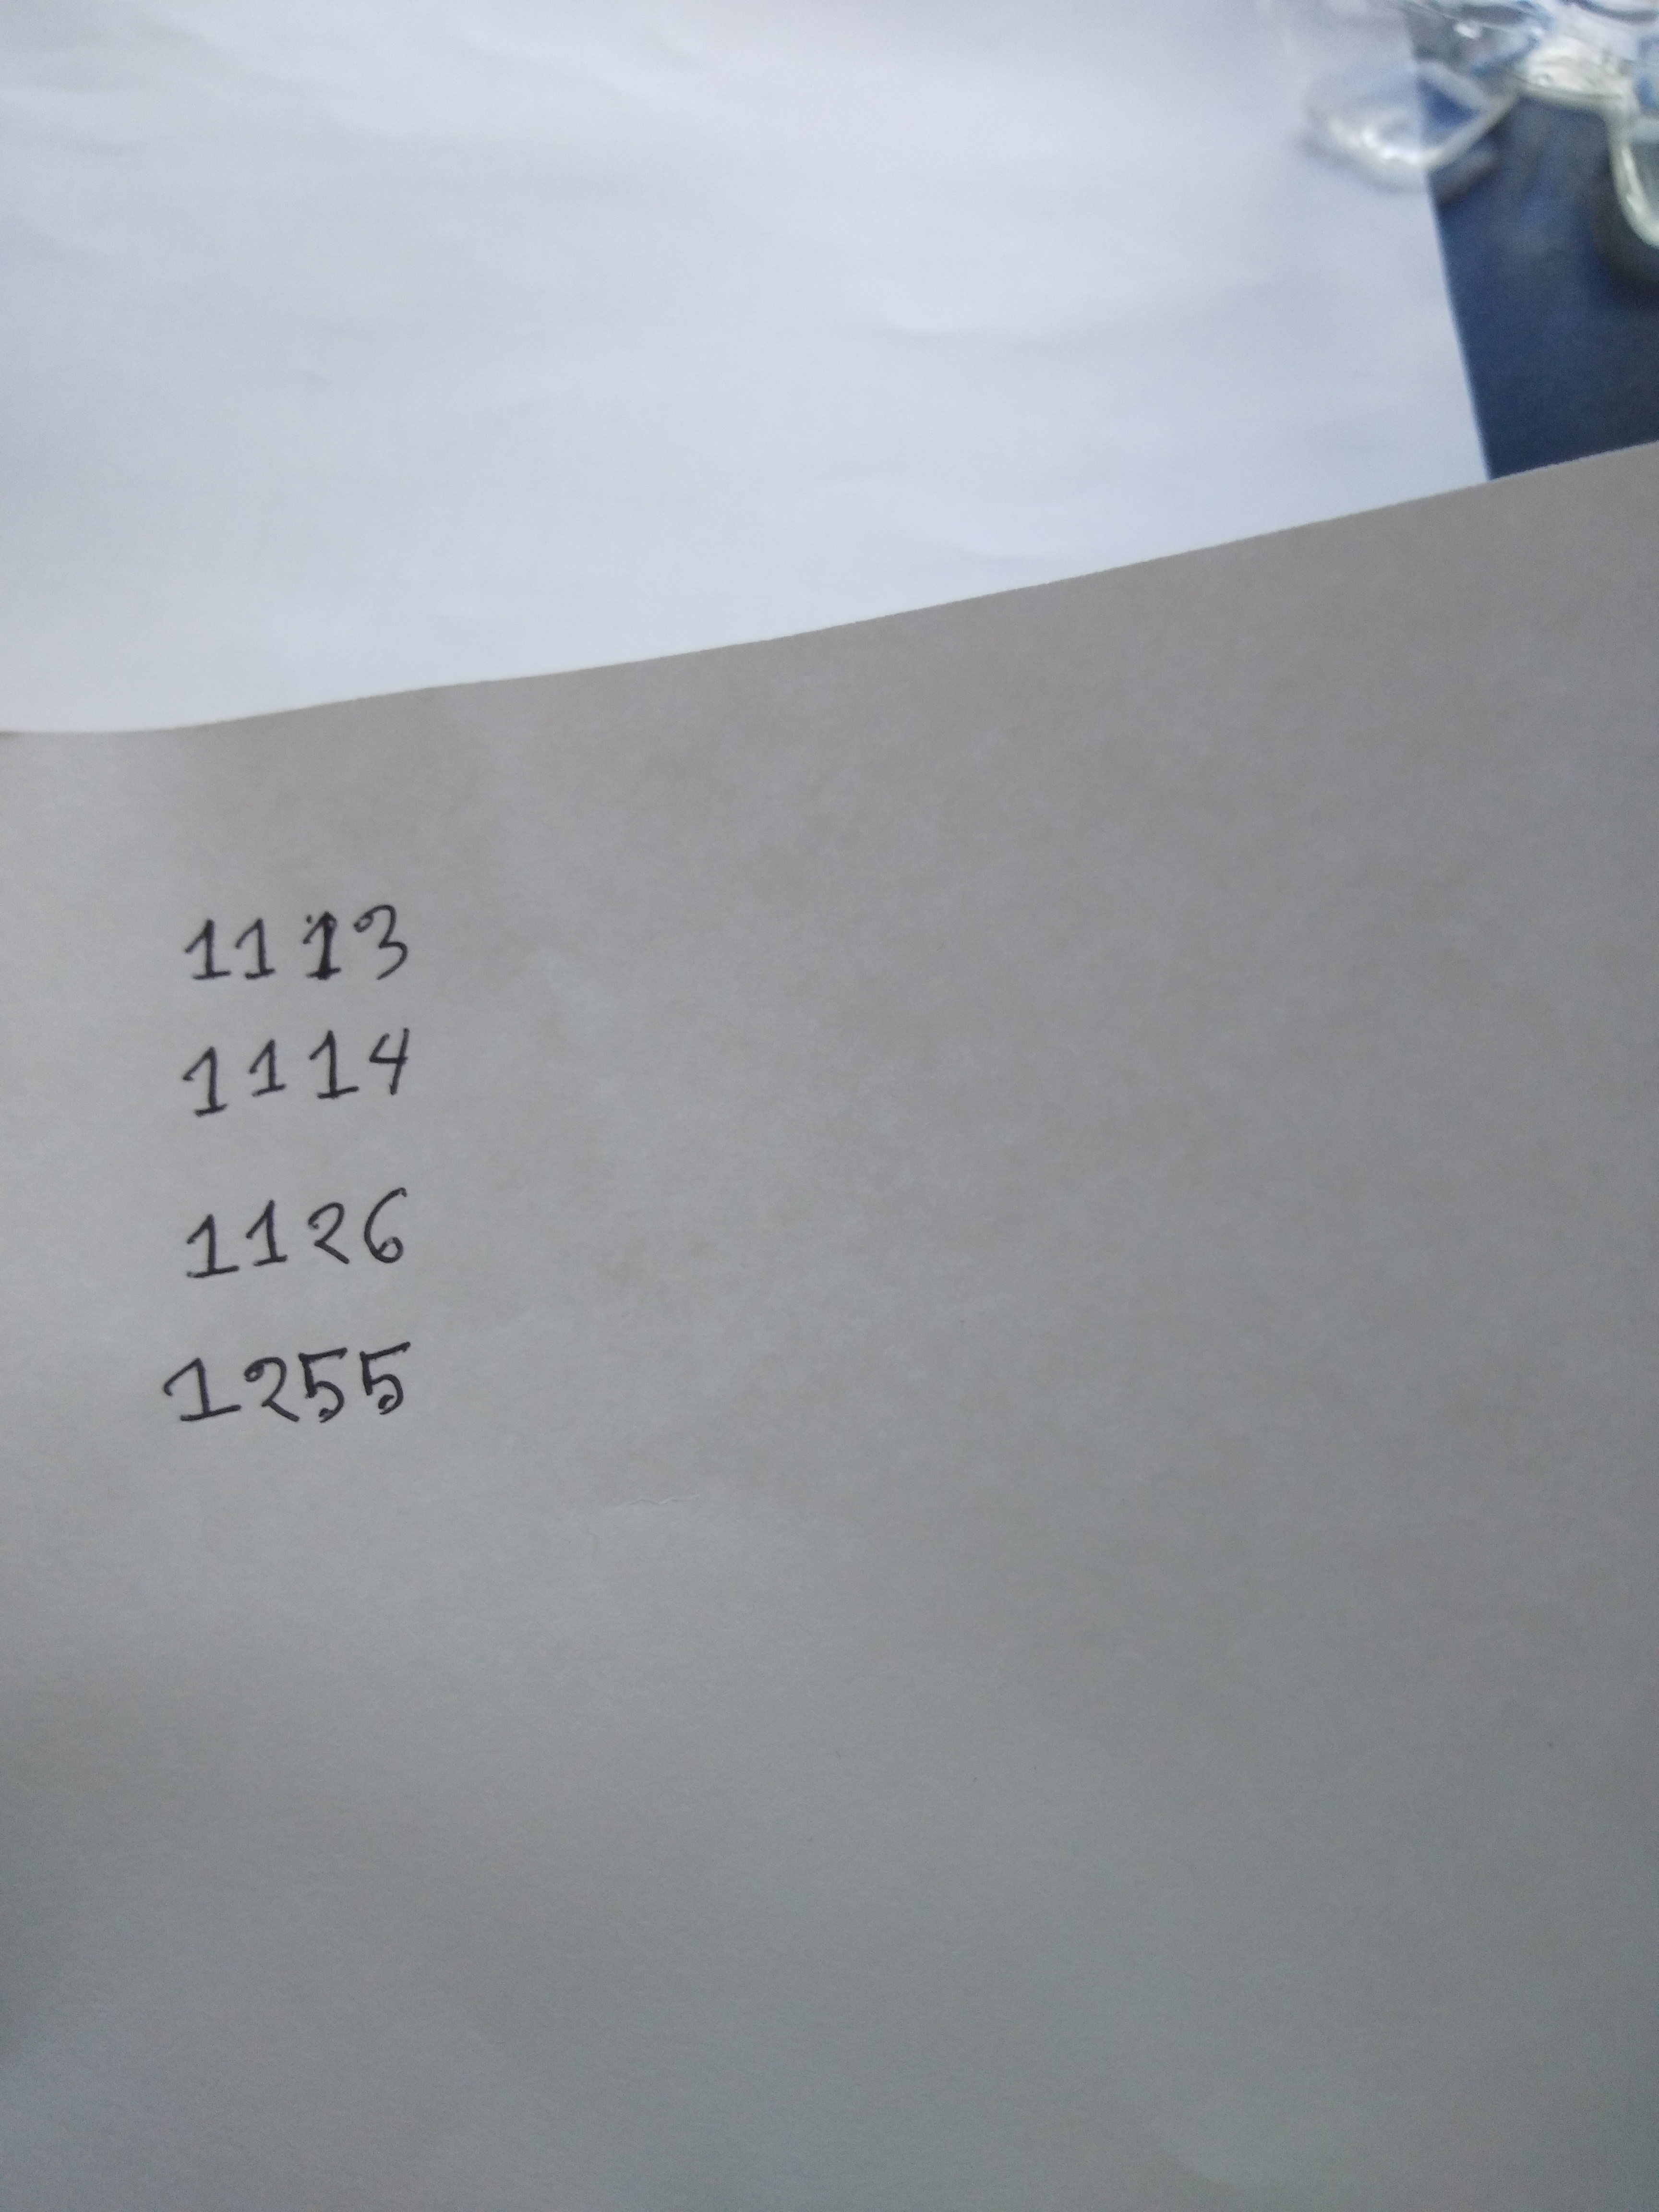 1113
1114
1126
1255